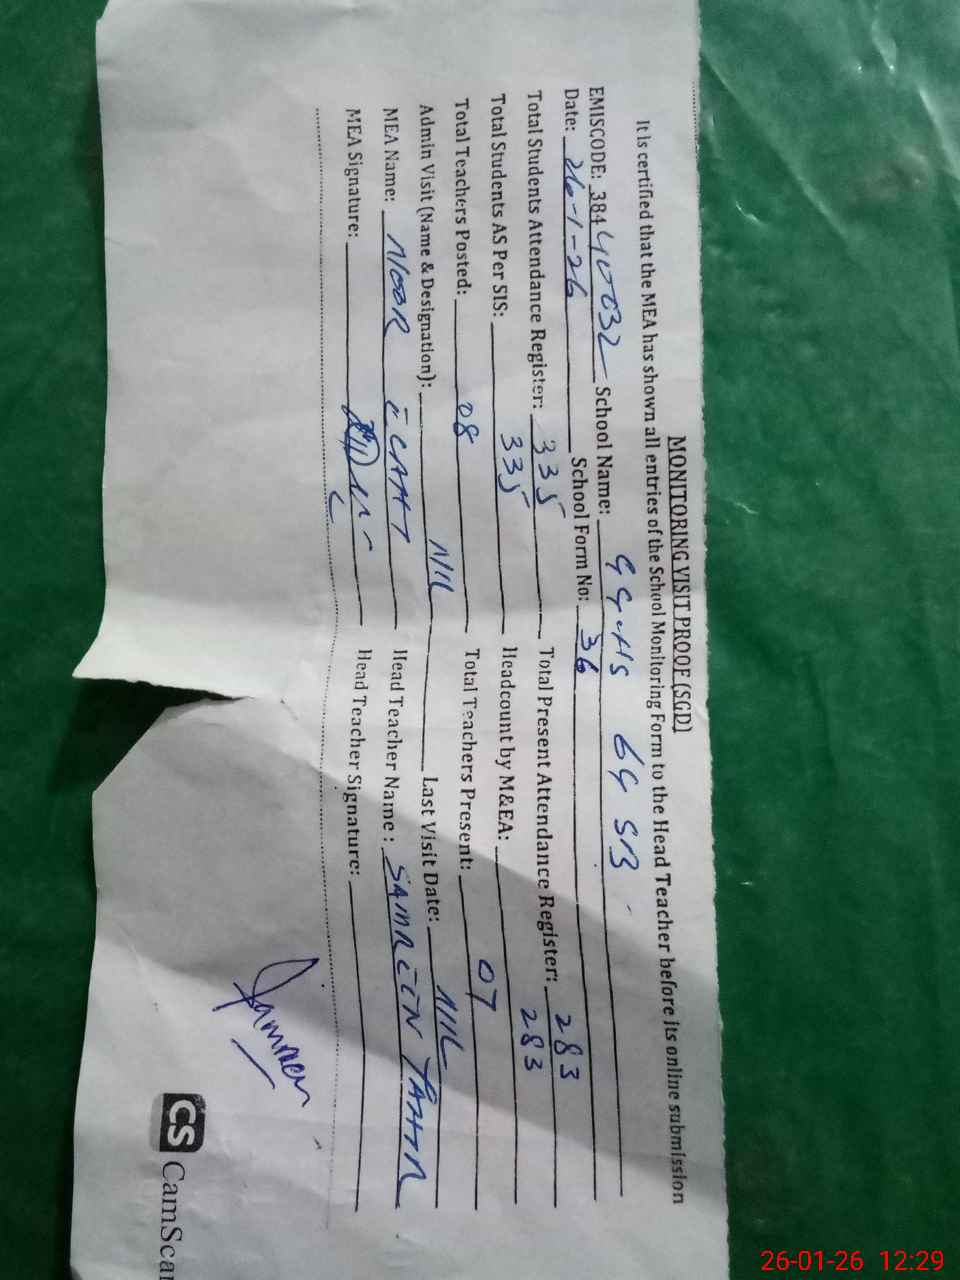 MONITORING VISIT PROOF (SGD)
It is certified that the MEA has shown all entries of the School Monitoring Form to the Head Teacher before its online submission
EMISCODE: 38440032 School Name: GGHS 64 SB
Date: 26-1-26 School Form No: 36
Total Students Attendance Register: 335 Total Present Attendance Register: 283
Total Students AS Per SIS: 335 Headcount by M&EA: 283
Total Teachers Posted: 08 Total Teachers Present: 07
Admin Visit (Name & Designation): NIL Last Visit Date: NIL
MEA Name: NOOR Head Teacher Name: SAMREEN
MEA Signature: Head Teacher Signature:
CS CamSca
26-01-26 12:29